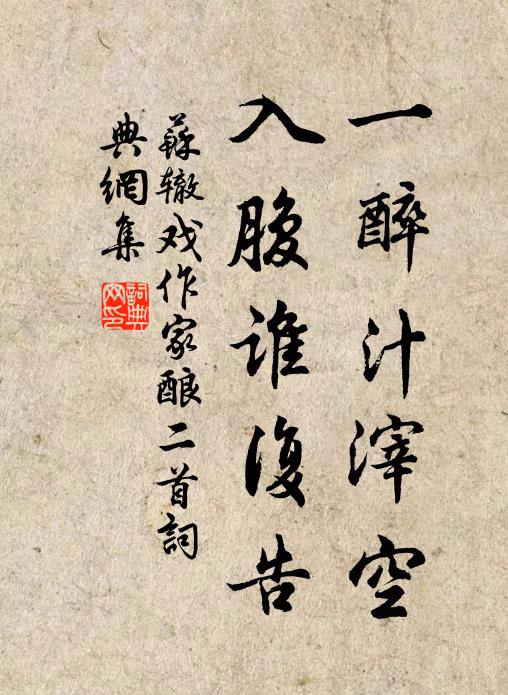 一醉汁滓空
入腹谁復告
蘇辙戏作家酿二首詞
典網集
詞典
网印